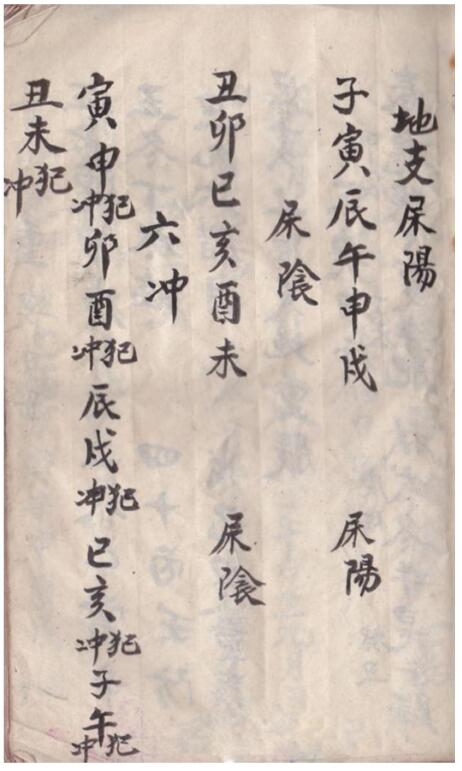 地支尿陽
子寅辰午申戌 尿陽
尿陰
丑卯巳亥酉未 尿陰
六冲
寅申犯冲卯酉犯冲辰戌犯冲巳亥犯冲子午犯冲
丑未犯冲